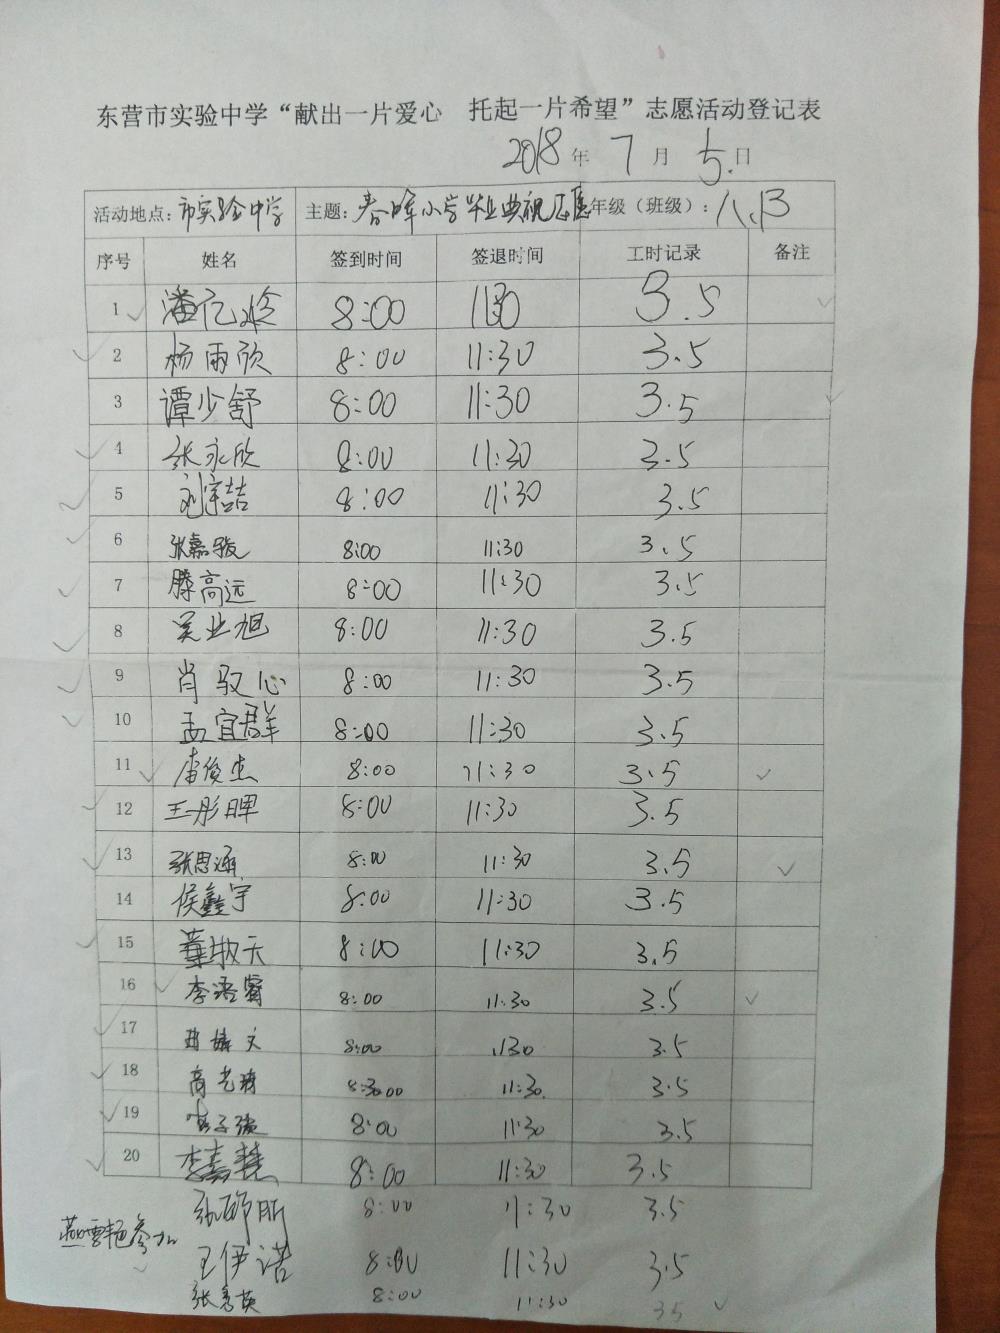 东营市实验中学“献出一片爱心 托起一片希望”志愿活动登记表
2018年 7月 5日
活动地点：市实验中学 主题：春晖小学毕业典礼志愿 年级（班级）：八.13
序号 姓名 签到时间 签退时间 工时记录 备注
1 潘亿 8:00 11:30 3.5
2 杨雨欣 8:00 11:30 3.5
3 谭少舒 8:00 11:30 3.5
4 张永欣 8:00 11:30 3.5
5 刘宇喆 8:00 11:30 3.5
6 张嘉骏 8:00 11:30 3.5
7 滕高远 8:00 11:30 3.5
8 吴业旭 8:00 11:30 3.5
9 肖驭心 8:00 11:30 3.5
10 孟宜群 8:00 11:30 3.5
11 俊杰 8:00 11:30 3.5
12 王彤暉 8:00 11:30 3.5
13 张思涵 8:00 11:30 3.5
14 侯鑫宇 8:00 11:30 3.5
15 董敬天 8:00 11:30 3.5
16 李语 8:00 11:30 3.5
17 文 8:00 1130 3.5
18 高艺 8:3000 11:30 3.5
19 子 8:00 11:30 3.5
20 李嘉慧 8:00 11:30 3.5
张 昕 8:00 11:30 3.5
燕雪艳参加
王伊诺 8:00 11:30 3.5
张秀英 8:00 11:30 3.5